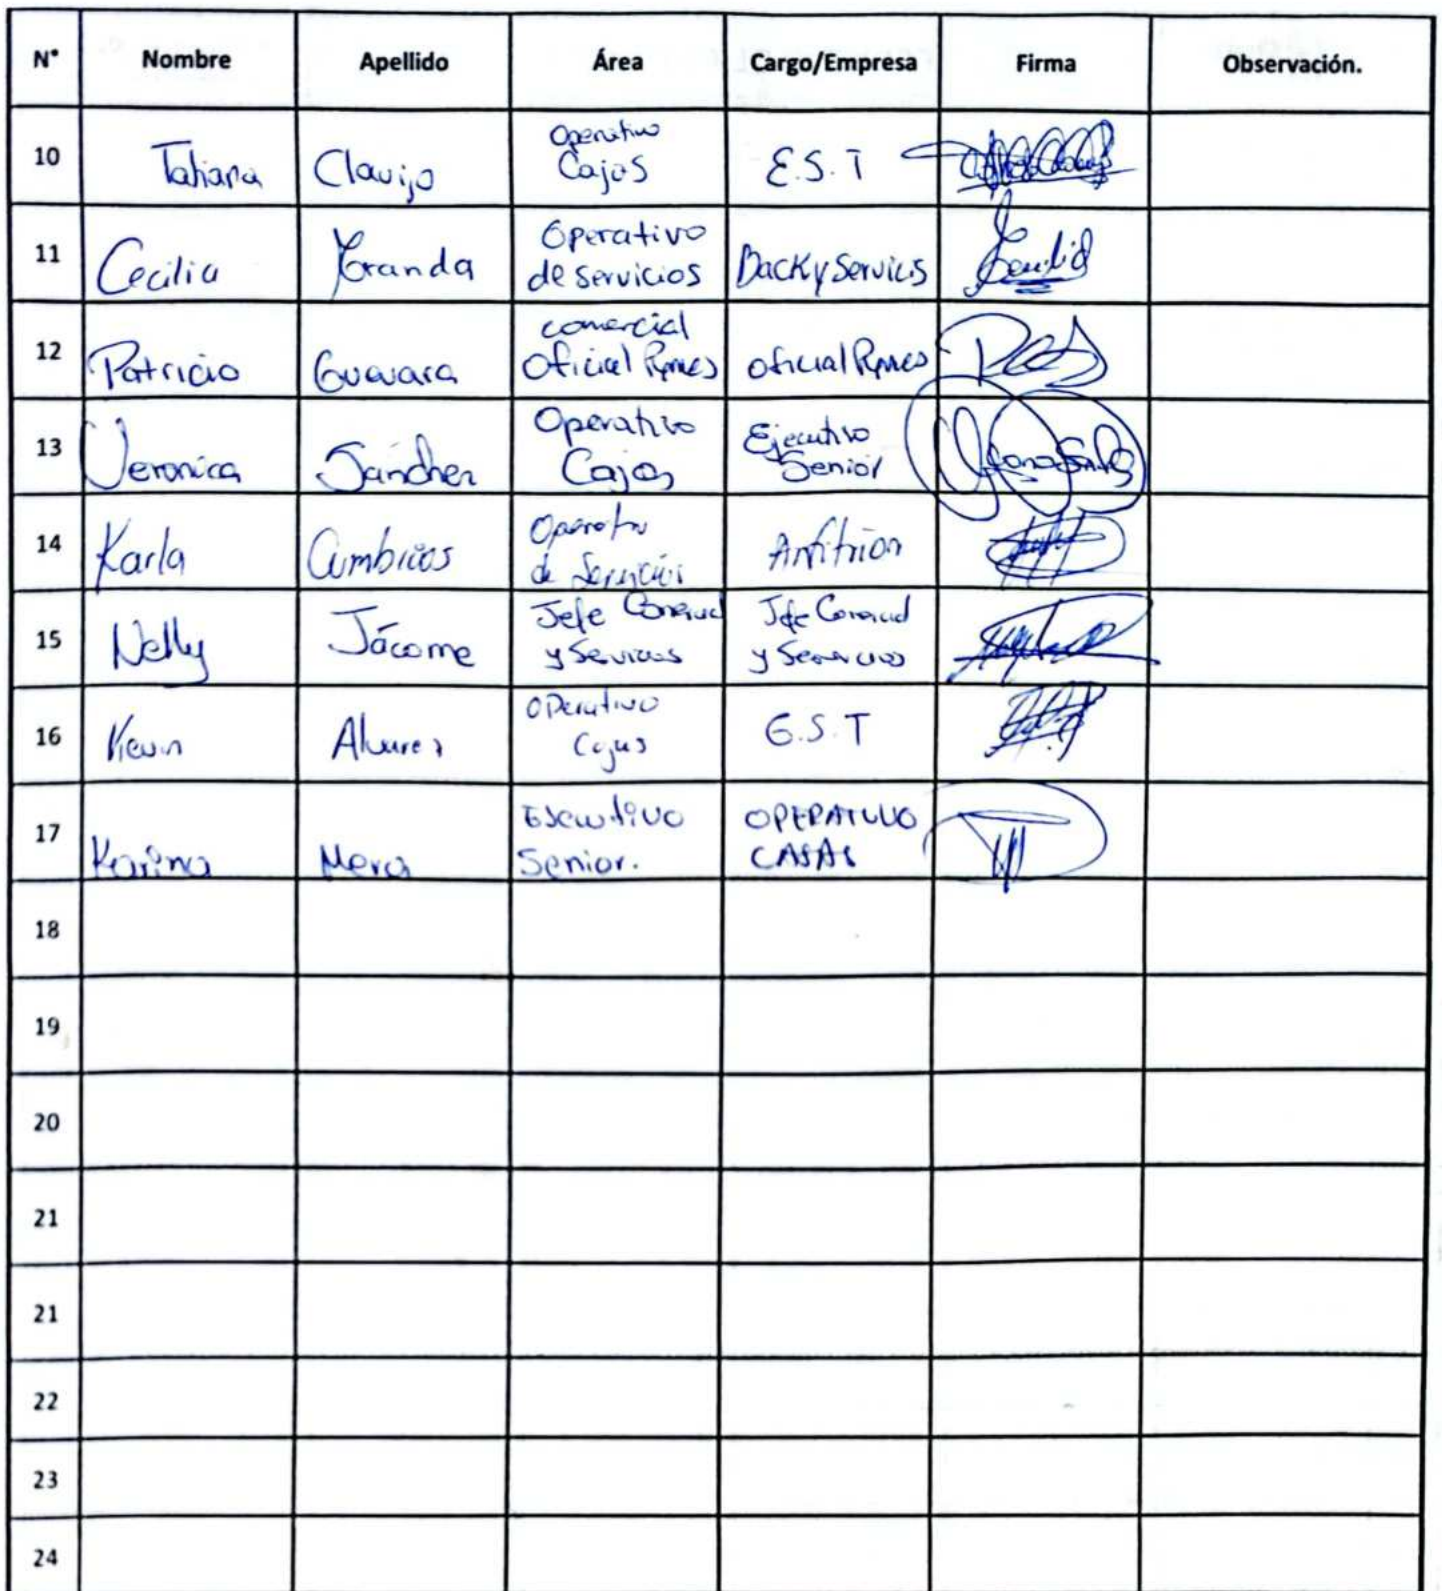 N° Nombre Apellido Área Cargo/Empresa Firma Observación.
10 Tatiana Clavijo Operativo Cajas E.S.T
11 Cecilia Granda Operativo de servicios Backy Servicis
12 Patricio Guevara comercial Oficial Pymes oficial Pymes
13 Veronica Sánchez Operativo Cajas Ejecutivo Senior
14 Karla Cumbicos Operativo de Servicios Anfitrion
15 Nelly Jácome Jefe Comercial y Servicios Jefe Comercial y Servicios
16 Kevin Alvarez Operativo Cajas E.S.T
17 Karina Mera Ejecutivo Senior. OPERATIVO CAJAS
18
19
20
21
21
22
23
24